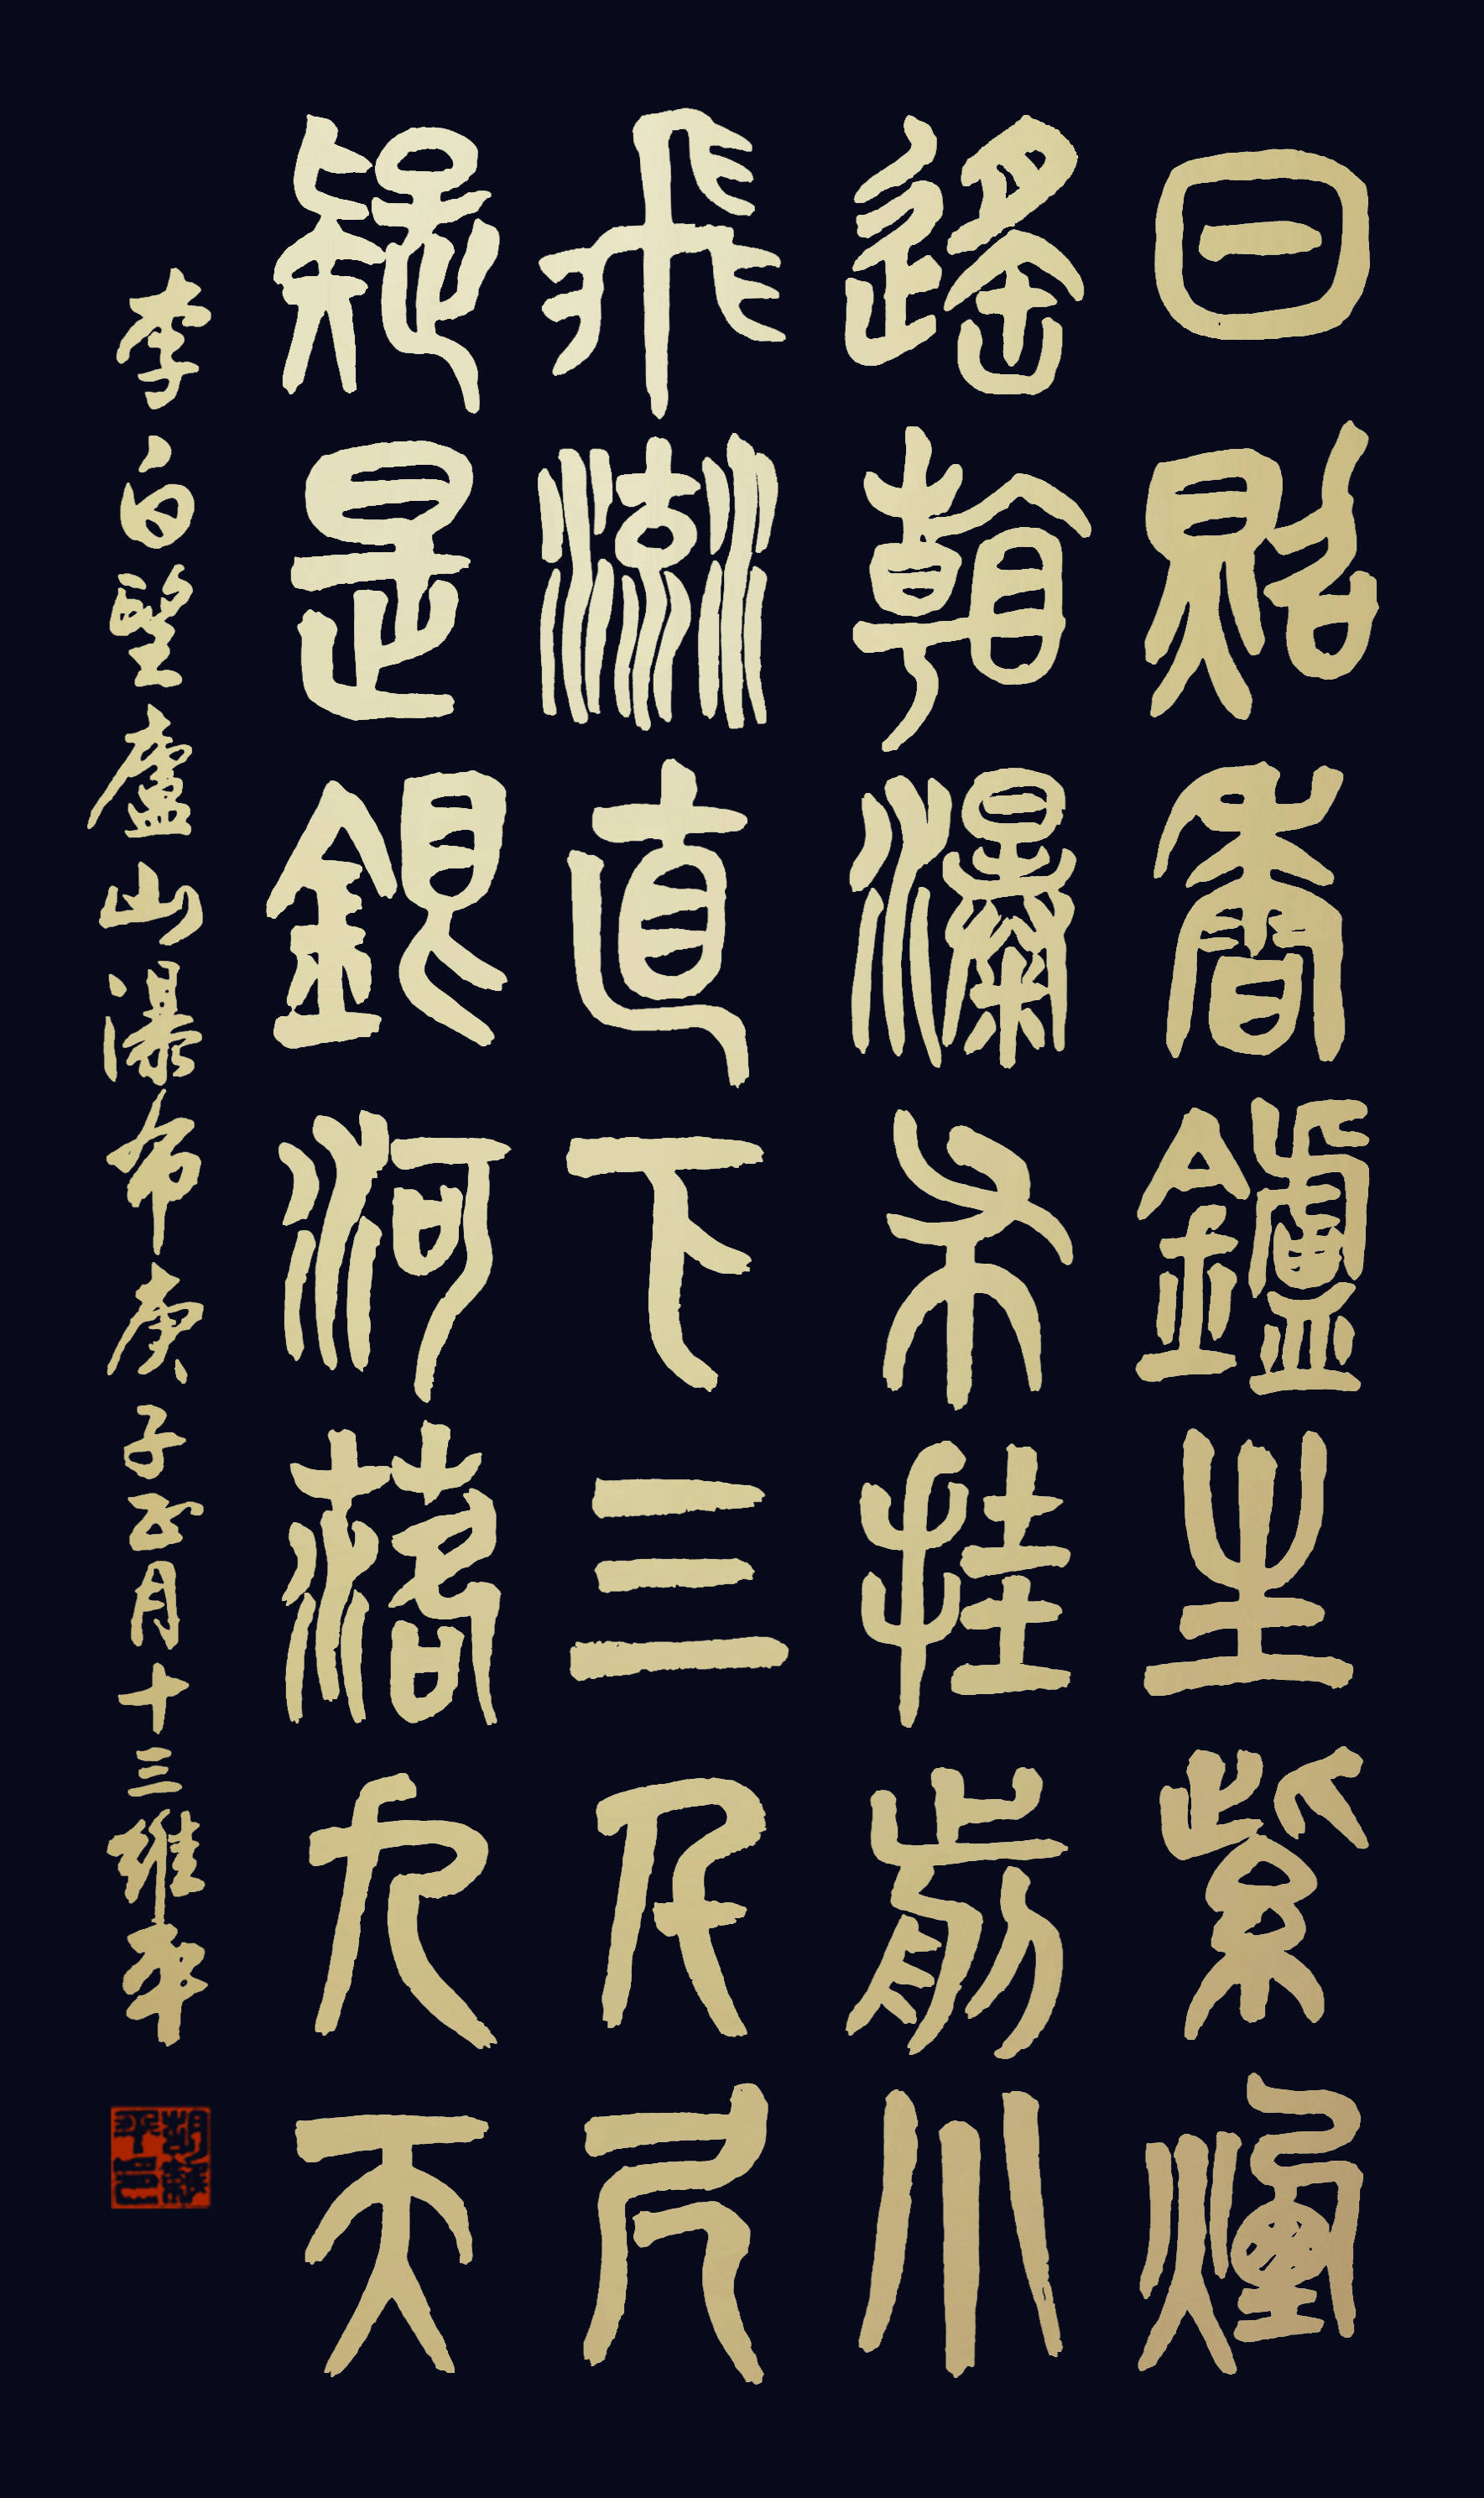 日照香鑪生紫煙
遙看瀑布挂前川
飛流直下三千尺
疑是銀河落九天
李白望廬山瀑布庚子五月十三維